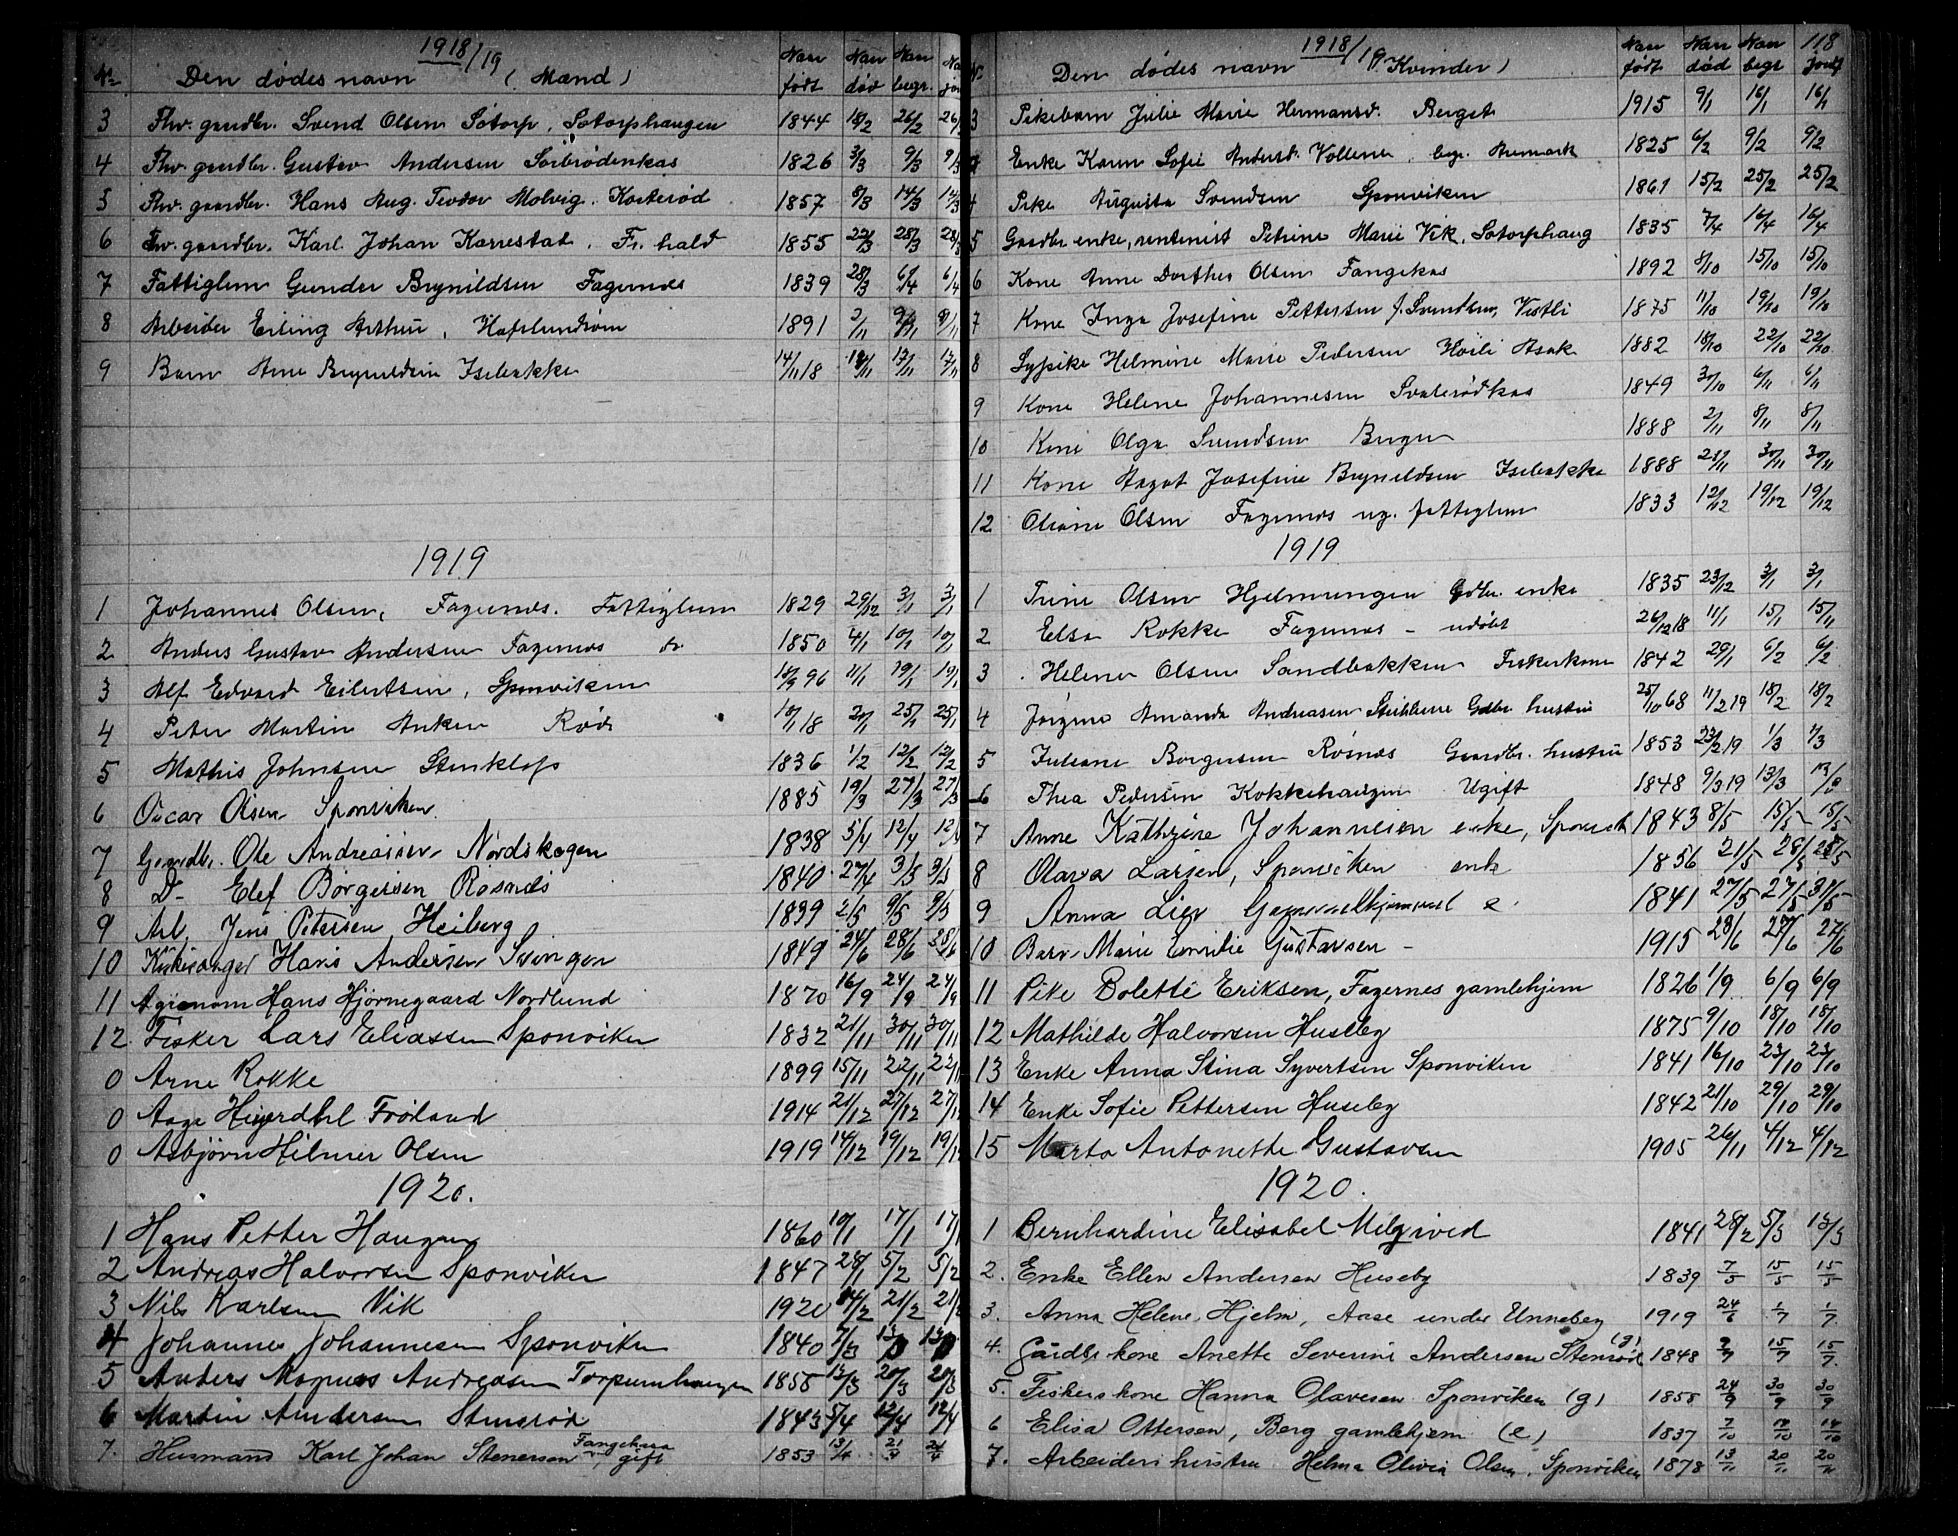 1918/19
No Den dødes navn (Mænd) Naar født Naar død Naar begr.
3 Fhv. gaardbr. Svend Olsen Sotorp, Sotorphaugen 1844 18/2 26/2 26/
4 Fhv. gaardbr. Gustav Andersen Sørbrødenkas 1826 3/3 9/3 9/3
5 Fhv. gaardbr. Hans Aug. Teodor Molvig, Korterød 1857 8/3 14/3 14/3
6 Fhv. gaardbr. Karl Johan Karrestad, Fr.hald 1855 22/3 28/3 28/3
7 Fattiglem Gunder Brynildsen Fagernes 1839 28/3 6/4 6/4
8 Arbeider Erling Arthur, Hafslundsøen 1891 2/11 9/11 9/11
9 Barn Arne Brynildsen Isebakke 14/11 18 /11 17/11 17/11
1919
1 Johannes Olsen, Fagernes. Fattiglem 1829 29/12 3/1 3/1
2 Anders Gustav Andersen Fagernes do 1850 4/1 10/1 10/1
3 Alf Edvard Eilertsen, Sponviken 96 11/1 19/1 19/1
4 Peter Martin Anker Rød 10/1 18 20/1 25/1 25/1
5 Mathis Johnsen Stenkløfs 1836 1/2 12/2 12/2
6 Oscar Olsen Sponviken 1885 19/3 27/3 27/3
7 Gaardbr. Ole Andreassen Nordskogen 1838 5/4 12/4 12/
8 D- Elef Børgersen Røsnæs 1840 27/4 3/5 3/5
9 Arb. Jens Petersen Heiberg 1839 2/5 9/5 9/5
10 Kirkesanger Hans Andersen Svingen 1849 24/6 28/6 28/6
11 Agronom Hans Hjørnegaard Nordlund 1870 16/9 24/9 24/9
12 Fisker Lars Eliassen Sponviken 1832 21/11 30/11 30/11
0 Arne Rokke 1899 15/11 22/11 22/11
0 Aage Frøland 1914 21/12 27/12 27/1
0 Asbjørn Hilmer Olsen 1919 14/12 19/12 19/12
1920.
1 Hans Petter Haugen 1860 10/1 17/1 17/1
2 Andreas Halvorsen Sponviken 1847 28/1 5/2 5/2
3 Nils Karlsen Vik 1920 14/2 21/2 21/2
4 Johannes Johannesen Sponviken 1840 7/3 13/3 13/3
5 Anders Magnus Andreasen Torpumhaugen 1855 12/3 20/3 20/3
6 Martin Andersen Stensrød 1843 5/4 12/4 12/4
7. Husmand Karl Johan Stenersen Fangekasa gift 1853 13/4 21/4 21/4
1918/19 118
No Den dødes navn (Kvinder) Naar født Naar død Naar begr. Jordf
3 Pikebarn Julie Marie Hermansd. Berget 1915 9/1 16/1 16/1
Enke Karen Sofie Andersd. Vollene, begr. Aremark 1825 6/2 9/2 9/2
4 Pike Augusta Svendsen Sponviken 1861 15/2 25/2 25/2
5 Gaardbr enke, rentenist Petrine Marie Vik, Sotorphaug 1835 7/4 16/4 16/4
6 Kone Anne Dorthea Olsen Fangekas 1892 8/10 15/10 15/10
7 Kone Inga Josefine Pettersen f. Svendsen, Vestli 1875 11/10 19/10 19/10
8 Sypike Helmine Marie Pedersen Høili Asak 1882 18/10 22/10 22/10
9 Kone Helene Johannesen Svaterødkas 1849 30/10 6/11 6/11
10 Kone Olga Svendsen Bergen 1888 2/11 8/11 8/11
11 Kone Aagot Josefine Brynildsen Isebakke 1888 21/11 30/11 30/11
12 Oliane Olsen Fagernes ug. fattiglem 1833 12/12 19/12 19/12
1919
1 Trine Olsen Hjelmungen Gdbr. enke 1835 23/12 3/1 3/1
2 Elsa Rokke Fagernes - udøbt 26/12 18 11/1 15/1 15/1
3 Helene Olsen Sandbakken Fiskerkone 1842 29/1 6/2 6/2
4 Jørgine Amanda Andreasen Stubberne Gdbr. hustru 25/10 68 11/2 19 18/2 18/2
5 Juliane Borgersen Røsnæs Gaardbr. hustru 1853 23/2 19 1/3 1/3
6 Thea Pedersen Kokkehaugen Ugift 1848 9/3 19 13/3 13/3
7 Anne Kathrine Johannesen enke, Sponvik 1843 8/5 15/5 15/5
8 Olava Larsen, Sponviken enke 1856 21/5 28/5 28/5
9 Anna Lier Gammelhjemmet e. 1841 27/5 27/5 31/5
10 Barn Marie Emilie Gustavsen - 1915 23/6 27/6 27/6
11 Pike Bolette Eriksen, Fagernes gamlehjem 1826 1/9 6/9 6/9
12 Mathilde Halvorsen Huseby 1875 9/10 15/10 15/10
13 Enke Anna Stina Syvertsen Sponviken 1841 16/10 23/10 23/10
14 Enke Sofie Pettersen Huseby 1842 21/10 29/10 29/10
15 Marta Antonette Gustavsen 1905 26/11 4/12 4/12
1920.
1 Bernhardine Elisabet 1841 28/2 5/3 13/3
2. Enke Ellen Andersen Huseby 1839 7/5 15/5 15/5
3. Anna Helene Hjelm, Aase under Unneberg 1919 24/6 1/7 1/7
4. Gaardbr. kone Anette Severine Andersen Stensrød (g) 1848 /7 15/7 15/7.
5. Fiskerskone Hanna Olavesen Sponviken (g) 1855 24/9 30/9 30/9
6 Elisa Ottersen, Berg gamlehjem (e) 1837 7/10 14/10 14/10
7. Arbeiderhustru Helma Olivia Olsen, Sponviken 1878 13/11 20/11 20/11